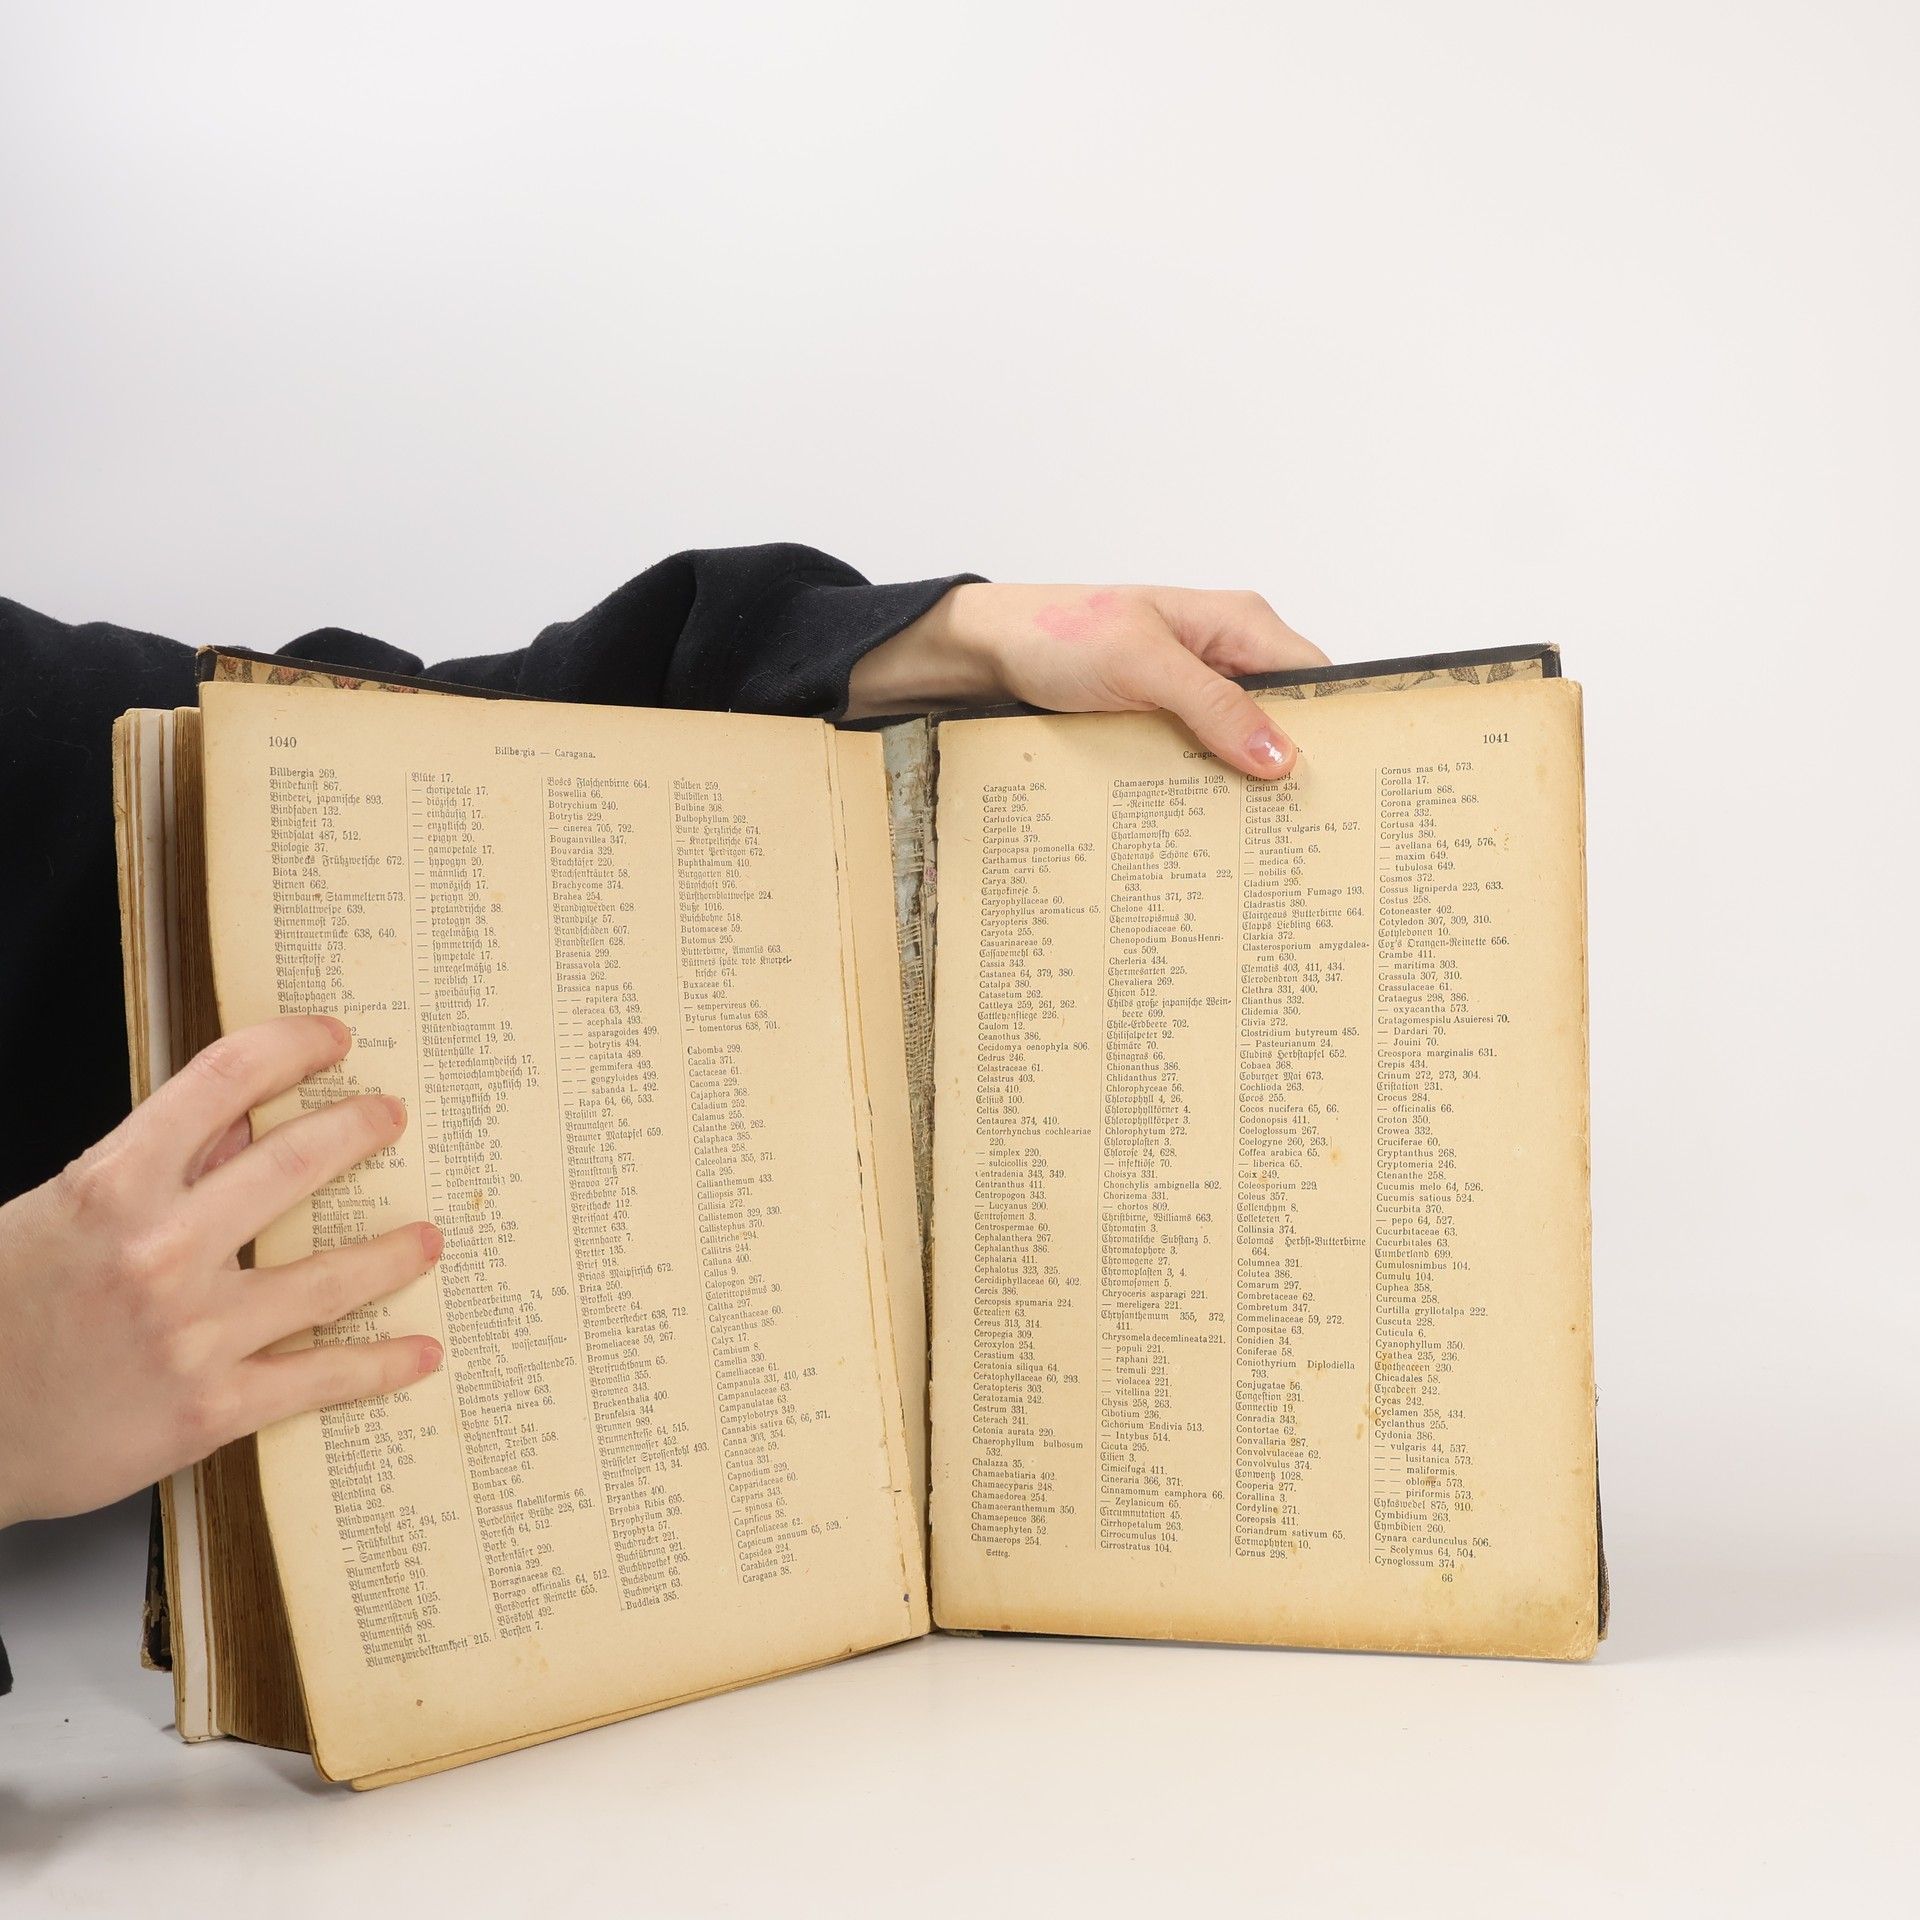 1040
Billbergia — Caragana.
Billbergia 269.
Bindekunst 867.
Binderei, japanische 893.
Bindfaden 132.
Bindigkeit 73.
Bindsalat 487, 512.
Biologie 37.
Biondecks Frühzwetsche 672.
Biota 248.
Birnen 662.
Birnbaum, Stammeltern 573.
Birnblattwespe 639.
Birnenmost 725.
Birntrauermücke 638, 640.
Birnquitte 573.
Bitterstoffe 27.
Blasenfuß 226.
Blasentang 56.
Blastophagen 38.
Blastophagus piniperda 221.
Walnuß-
Blattkäfer 221.
Blattkissen 17.
Blattspreite 14.
Blausäure 635.
Blausieb 223.
Blechnum 235, 237, 240.
Bleichsellerie 506.
Bleichsucht 24, 628.
Bleidraht 133.
Blendling 68.
Bletia 262.
Blindwanzen 224.
Blumenkohl 487, 494, 551.
— Frühkultur 557.
— Samenbau 697.
Blumenkorb 884.
Blumenkorso 910.
Blumenkrone 17.
Blumenläden 1025.
Blumenstrauß 875.
Blumentisch 898.
Blumenuhr 31.
Blumenzwiebelkrankheit 215.
Blüte 17.
— choripetale 17.
— diözisch 17.
— einhäusig 17.
— enzyklisch 20.
— epigyn 20.
— gamopetale 17.
— hypogyn 20.
— männlich 17.
— monözisch 17.
— perigyn 20.
— protandrische 38.
— protogyn 38.
— regelmäßig 18.
— symmetrisch 18.
— sympetale 17.
— unregelmäßig 18.
— weiblich 17.
— zweihäusig 17.
— zwittrich 17.
Bluten 25.
Blütendiagramm 19.
Blütenformel 19, 20.
Blütenhülle 17.
— heterochlamydeisch 17.
— homoiochlamydeisch 17.
Blütenorgan, azyklisch 19.
— hemizyklisch 19.
— tetrazyklisch 20.
— trizyklisch 20.
— zyklisch 19.
Blütenstände 20.
— botrytisch 20.
— cymöser 21.
— doldentraubig 20.
— racemös 20.
— traubig 20.
Blütenstaub 19.
Blutlaus 225, 639.
Boboliagärten 812.
Bocconia 410.
Bockschnitt 773.
Boden 72.
Bodenarten 76.
Bodenbearbeitung 74, 595.
Bodenbedeckung 476.
Bodenfeuchtigkeit 195.
Bodenkohlrabi 499.
Bodenkraft, wasseraufsau-
gende 75.
Bodenkraft, wasserhaltende 75.
Bodenmüdigkeit 215.
Boldmots yellow 683.
Boe heueria nivea 66.
Bohne 517.
Bohnenkraut 541.
Bohnen, Treiben 558.
Boikenapfel 653.
Bombaceae 61.
Bombax 66.
Bora 108.
Borassus flabelliformis 66.
Bordelaiser Brühe 228, 631.
Boretsch 64, 512.
Borke 9.
Borkenkäfer 220.
Boronia 329.
Borraginaceae 62.
Borrago officinalis 64, 512.
Borsdorfer Reinette 655.
Börskohl 492.
Borsten 7.
Boses Flaschenbirne 664.
Boswellia 66.
Botrychium 240.
Botrytis 229.
— cinerea 705, 792.
Bougainvillea 347.
Bouvardia 329.
Brachkäfer 220.
Brachsenkräuter 58.
Brachycome 374.
Brahea 254.
Brandigwerden 628
Brandpilze 57.
Brandschäden 607.
Brandstellen 628.
Brasenia 299.
Brassavola 262.
Brassia 262.
Brassica napus 66.
— — rapifera 533.
— oleracea 63, 489.
— — acephala 493.
— — asparagoides 499.
— — botrytis 494.
— — capitata 489.
— — gemmifera 493.
— — gongyloides 499.
— — sabanda L. 492.
— Rapa 64, 66, 533.
Brasilin 27.
Braunalgen 56.
Brauner Matapfel 659.
Brause 126.
Brautkranz 877.
Brautstrauß 877.
Bravoa 277
Brechbohne 518.
Breithacke 112.
Breitsaat 470.
Brenner 633.
Brennhaare 7.
Bretter 135.
Brief 918.
Briggs Maipfirsich 672.
Briza 250.
Brokkoli 499.
Brombeere 64.
Brombeerstecher 638, 712.
Bromelia karatas 66.
Bromeliaceae 59, 267.
Bromus 250.
Brotfruchtbaum 65.
Browallia 355.
Brownea 343.
Bruckenthalia 400.
Brunfelsia 344.
Brunnen 989.
Brunnenkresse 64, 515.
Brunnenwasser 452.
Brüsseler Sprossenkohl 493.
Brutknospen 13, 34.
Bryales 57.
Bryanthes 400.
Bryobia Ribis 695.
Bryophyllum 309.
Bryophyta 57.
Buchdrucker 221.
Buchführung 921.
Buchhypothek 995.
Buchsbaum 66.
Buchweizen 63.
Buddleia 385.
Bulben 259.
Bulbillen 13.
Bulbine 308.
Bulbophyllum 262.
Bunte Herzkirsche 674.
— Knorpelkirsche 674.
Bunter Perdrigon 672.
Buphthalmum 410.
Burggarten 810.
Bürgschaft 976.
Bürsthornblattwespe 224.
Buße 1016.
Buschbohne 518.
Butomaceae 59.
Butomus 295.
Butterbirne, Amanlis 663.
Büttners späte rote Knorpel-
kirsche 674.
Buxaceae 61.
Buxus 402.
— sempervireus 66.
Byturus fumatus 638.
— tomentorus 638, 701.
Cabomba 299.
Cacalia 371.
Cactaceae 61.
Cacoma 229.
Cajaphora 368.
Caladium 252.
Calamus 255.
Calanthe 260, 262.
Calaphaca 385.
Calathea 258.
Calceolaria 355, 371.
Calla 295.
Callianthemum 433.
Calliopsis 371.
Callisia 272.
Callistemon 329, 330.
Callistephus 370.
Callitriche 294.
Callitris 244.
Calluna 400.
Callus 9.
Calopogon 267.
Caloritropismus 30.
Caltha 297.
Calycanthaceae 60.
Calycanthus 385.
Calyx 17.
Cambium 8.
Camellia 330.
Camelliaceae 61.
Campanula 331, 410, 433.
Campanulaceae 63.
Campanulatae 63.
Campylobotrys 349.
Cannabis sativa 65, 66, 371.
Canna 303, 354.
Cannaceae 59.
Cantua 331.
Capnodium 229.
Capparidaceae 60.
Capparis 343.
— spinosa 65.
Caprificus 38.
Caprifoliaceae 62.
Capsicum annuum 65, 529.
Capsidea 224.
Carabiden 221.
Caragana 38.
1041
Caraguata 268.
Cardy 506.
Carex 295.
Carludovica 255.
Carpelle 19.
Carpinus 379.
Carpocapsa pomonella 632.
Carthamus tinctorius 66.
Carum carvi 65.
Carya 380.
Caryokineje 5.
Caryophyllaceae 60.
Caryophyllus aromaticus 65.
Caryopteris 386.
Caryota 255.
Casuarinaceae 59.
Cassavemehl 63.
Cassia 343.
Castanea 64, 379, 380.
Catalpa 380.
Catasetum 262.
Cattleya 259, 261, 262.
Cattleyenfliege 226.
Caulom 12.
Ceanothus 386.
Cecidomya oenophyla 806.
Cedrus 246.
Celastraceae 61.
Celastrus 403.
Celsia 410.
Celsius 100.
Celtis 380.
Centaurea 374, 410.
Centorrhynchus cochleariae
220.
— simplex 220.
— sulcicollis 220.
Centradenia 343, 349.
Centranthus 411.
Centropogon 343.
— Lucyanus 200.
Centrosomen 3.
Centrospermae 60.
Cephalanthera 267.
Cephalanthus 386.
Cephalaria 411.
Cephalotus 323, 325.
Cercidiphyllaceae 60, 402.
Cercis 386.
Cercopsis spumaria 224.
Cerealien 63.
Cereus 313, 314.
Ceropegia 309.
Ceroxylon 254.
Cerastium 433.
Ceratonia siliqua 64.
Ceratophyllaceae 60, 293.
Ceratopteris 303.
Ceratozamia 242.
Cestrum 331.
Ceterach 241.
Cetonia aurata 220.
Chaerophyllum bulbosum
532.
Chalazza 35.
Chamaebatiaria 402.
Chamaecyparis 248.
Chamaedorea 254.
Chamaeranthemum 350.
Chamaepeuce 366.
Chamaephyten 52.
Chamaerops 254.
Chamaerops humilis 1029.
Champagner-Bratbirne 670.
— -Reinette 654.
Champignonzucht 563.
Chara 293.
Charlamowsky 652.
Charophyta 56.
Chatenays Schöne 676.
Cheilanthes 239.
Cheimatobia brumata 222,
633.
Cheiranthus 371, 372.
Chelone 411.
Chemotropismus 30.
Chenopodiaceae 60.
Chenopodium Bonus Henri-
cus 509.
Cherleria 434.
Chermesarten 225.
Chevaliera 269.
Chicon 512.
Childs große japanische Wein-
beere 699.
Chile-Erdbeere 702.
Chilisalpeter 92.
Chimäre 70.
Chinagras 66.
Chionanthus 386.
Chlidanthus 277.
Chlorophyceae 56.
Chlorophyll 4, 26.
Chlorophyllkörner 4.
Chlorophyllkörper 3.
Chlorophytum 272.
Chloroplasten 3.
Chlorose 24, 628.
— infektiöse 70.
Choisya 331.
Chonchylis ambignella 802.
Chorizema 331.
— chortos 809.
Christbirne, Williams 663.
Chromatin 3.
Chromatische Substanz 5.
Chromatophore 3.
Chromogene 27.
Chromoplasten 3, 4.
Chromosomen 5.
Chryoceris asparagi 221.
— mereligera 221.
Chrysanthemum 355, 372,
411.
Chrysomela decemlineata 221.
— populi 221.
— raphani 221.
— tremuli 221.
— violacea 221.
— vitellina 221.
Chysis 258, 263.
Cibotium 236.
Cichorium Endivia 513.
— Intybus 514.
Cicuta 295.
Cilien 3.
Cimicifuga 411.
Cineraria 366, 371.
Cinnamomum camphora 66.
— Zeylanicum 65.
Circumnutation 45.
Cirrhopetalum 263.
Cirrocumulus 104.
Cirrostratus 104.
Cirsium 434.
Cissus 350.
Cistaceae 61.
Cistus 331.
Citrullus vulgaris 64, 527.
Citrus 331.
— aurantium 65.
— medica 65.
— nobilis 65.
Cladium 295.
Cladosporium Fumago 193.
Cladrastis 380.
Clairgeaus Butterbirne 664.
Clapps Liebling 663.
Clarkia 372.
Clasterosporium amygdalea-
rum 630.
Clematis 403, 411, 434.
Clerodendron 343, 347.
Clethra 331, 400.
Clianthus 332.
Clidemia 350.
Clivia 272.
Clostridium butyreum 485.
— Pasteurianum 24.
Cludius Herbstapfel 652.
Cobaea 368.
Coburger Mai 673.
Cochlioda 263.
Cocos 255.
Cocos nucifera 65, 66.
Codonopsis 411.
Coeloglossum 267.
Coelogyne 260, 263.
Coffea arabica 65.
— liberica 65.
Coix 249.
Coleosporium 229.
Coleus 357.
Collenchym 8.
Colleteren 7.
Collinsia 374.
Colomas Herbst-Butterbirne
664.
Columnea 321.
Colutea 386.
Comarum 297.
Combretaceae 62.
Combretum 347.
Commelinaceae 59, 272.
Compositae 63.
Conidien 34.
Coniferae 58.
Coniothyrium Diplodiella
793.
Conjugatae 56.
Congestion 231.
Connectiv 19.
Conradia 343.
Contortae 62.
Convallaria 287.
Convolvulaceae 62.
Convolvulus 374.
Conwentz 1028.
Cooperia 277.
Corallina 3.
Cordyline 271.
Coreopsis 411.
Coriandrum sativum 65.
Cormophyten 10.
Cornus 298.
Cornus mas 64, 573.
Corolla 17.
Corollarium 868.
Corona graminea 868.
Correa 332.
Cortusa 434.
Corylus 380.
— avellana 64, 649, 576.
— maxim 649.
— tubulosa 649.
Cosmos 372.
Cossus ligniperda 223, 633.
Costus 258.
Cotoneaster 402.
Cotyledon 307, 309, 310.
Cotyledonen 10.
Cox's Orangen-Reinette 656.
Crambe 411.
— maritima 303.
Crassula 307, 310.
Crassulaceae 61.
Crataegus 298, 386.
— oxyacantha 573.
Cratagomespislu Asuieresi 70.
— Dardari 70.
— Jouini 70.
Creospora marginalis 631.
Crepis 434.
Crinum 272, 273, 304.
Cristation 231.
Crocus 284.
— officinalis 66.
Croton 350.
Crowea 332.
Cruciferae 60.
Cryptanthus 268.
Cryptomeria 246.
Ctenanthe 258.
Cucumis melo 64, 526.
Cucumis satious 524.
Cucurbita 370.
— pepo 64, 527.
Cucurbitaceae 63.
Cucurbitales 63.
Cumberland 699.
Cumulosnimbus 104.
Cumulu 104.
Cuphea 358.
Curcuma 258.
Curtilla gryllotalpa 222.
Cuscuta 228.
Cuticula 6.
Cyanophyllum 350.
Cyathea 235, 236.
Cyatheaceen 230.
Chicadales 58.
Cycadeen 242.
Cycas 242.
Cyclamen 358, 434.
Cyclanthus 255.
Cydonia 386.
— vulgaris 44, 537.
— — lusitanica 573.
— — maliformis.
— — oblonga 573.
— — piriformis 573.
Cykaswedel 875, 910.
Cymbidium 263.
Cymbidien 260.
Cynara cardunculus 506.
— Scolymus 64, 504.
Cynoglossum 374
66